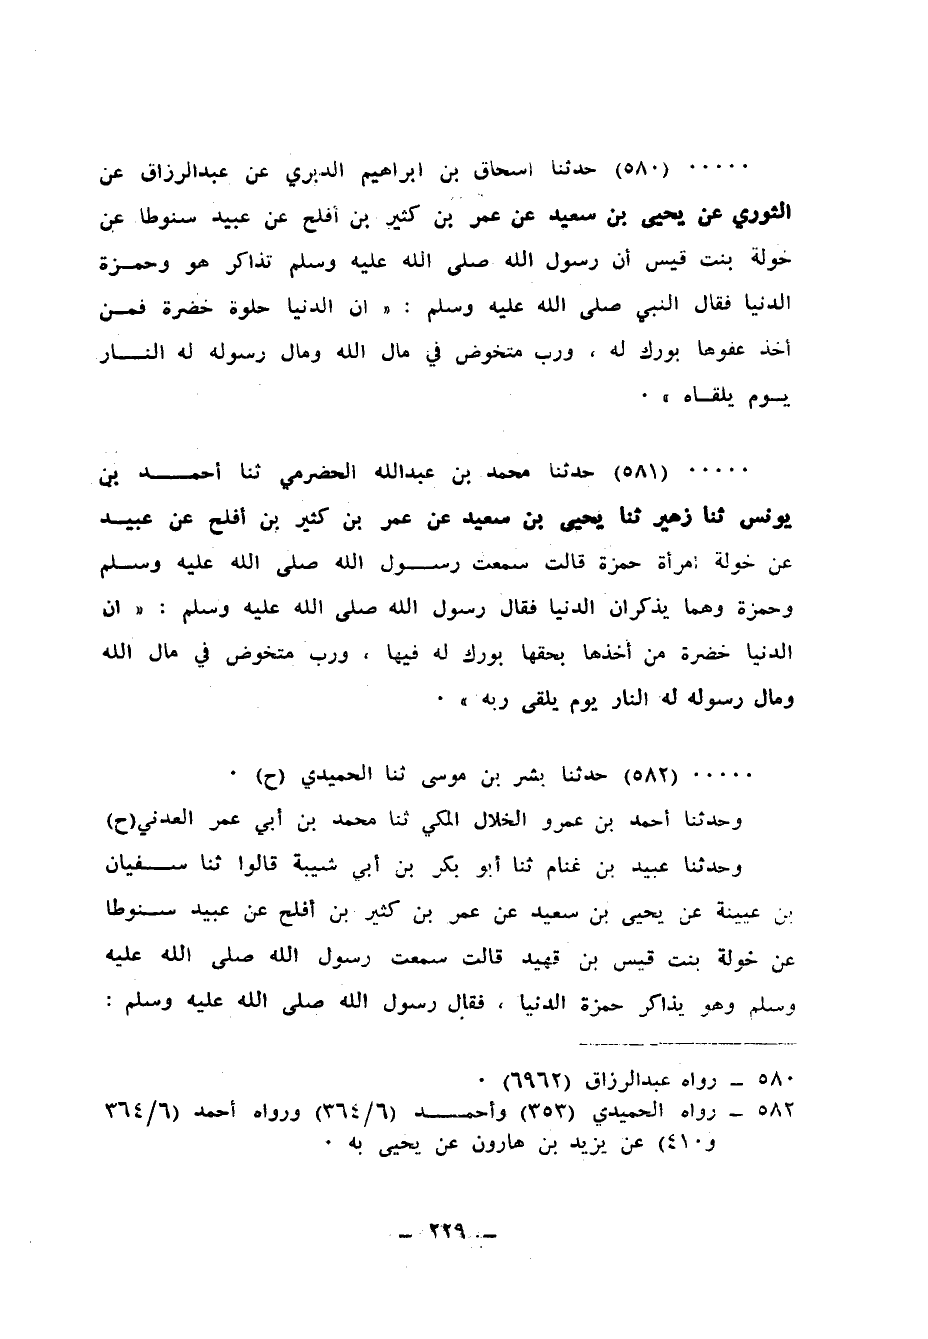 ..... (٥٨٠) حدثنا اسحاق بن ابراهيم الدبري عن عبدالرزاق عن
الثوري عن يحيى بن سعيد عن عمر بن كثير بن أفلح عن عبيد سنوطا عن
خولة بنت قيس أن رسول الله صلى الله عليه وسلم تذاكر هو وحمـزة
الدنيا فقال النبي صلى الله عليه وسلم : « ان الدنيا حلوة خضرة فمـن
أخذ عفوها بورك له ، ورب متخوض في مال الله ومال رسوله له النـــار
يـوم يلقـاه » .
..... (٥٨١) حدثنا محمد بن عبدالله الحضرمي ثنا أحمـــد بن
يونس ثنا زهير ثنا يحيى بن سعيد عن عمر بن كثير بن أفلح عن عبيـد
عن خولة امرأة حمزة قالت سمعت رســول الله صلى الله عليه وسـلم
وحمزة وهما يذكران الدنيا فقال رسول الله صلى الله عليه وسلم : « ان
الدنيا خضرة من أخذها بحقها بورك له فيها ، ورب متخوض في مال الله
ومال رسوله له النار يوم يلقى ربه » .
..... (٥٨٢) حدثنا بشر بن موسى ثنا الحميدي (ح) .
وحدثنا أحمد بن عمرو الخلال المكي ثنا محمد بن أبي عمر العدني(ح)
وحدثنا عبيد بن غنام ثنا أبو بكر بن أبي شيبة قالوا ثنا ســفيان
بن عيينة عن يحيى بن سعيد عن عمر بن كثير بن أفلح عن عبيد سـنوطا
عن خولة بنت قيس بن قهيد قالت سمعت رسول الله صلى الله عليه
وسلم وهو يذاكر حمزة الدنيا ، فقال رسول الله صلى الله عليه وسلم :
٥٨٠ ـ رواه عبدالرزاق (٦٩٦٢) .
٥٨٢ ـ رواه الحميدي (٣٥٣) وأحمـــد (٣٦٤/٦) ورواه أحمد (٣٦٤/٦
و٤١٠) عن يزيد بن هارون عن يحيى به .
ـ ٢٢٩ ـ